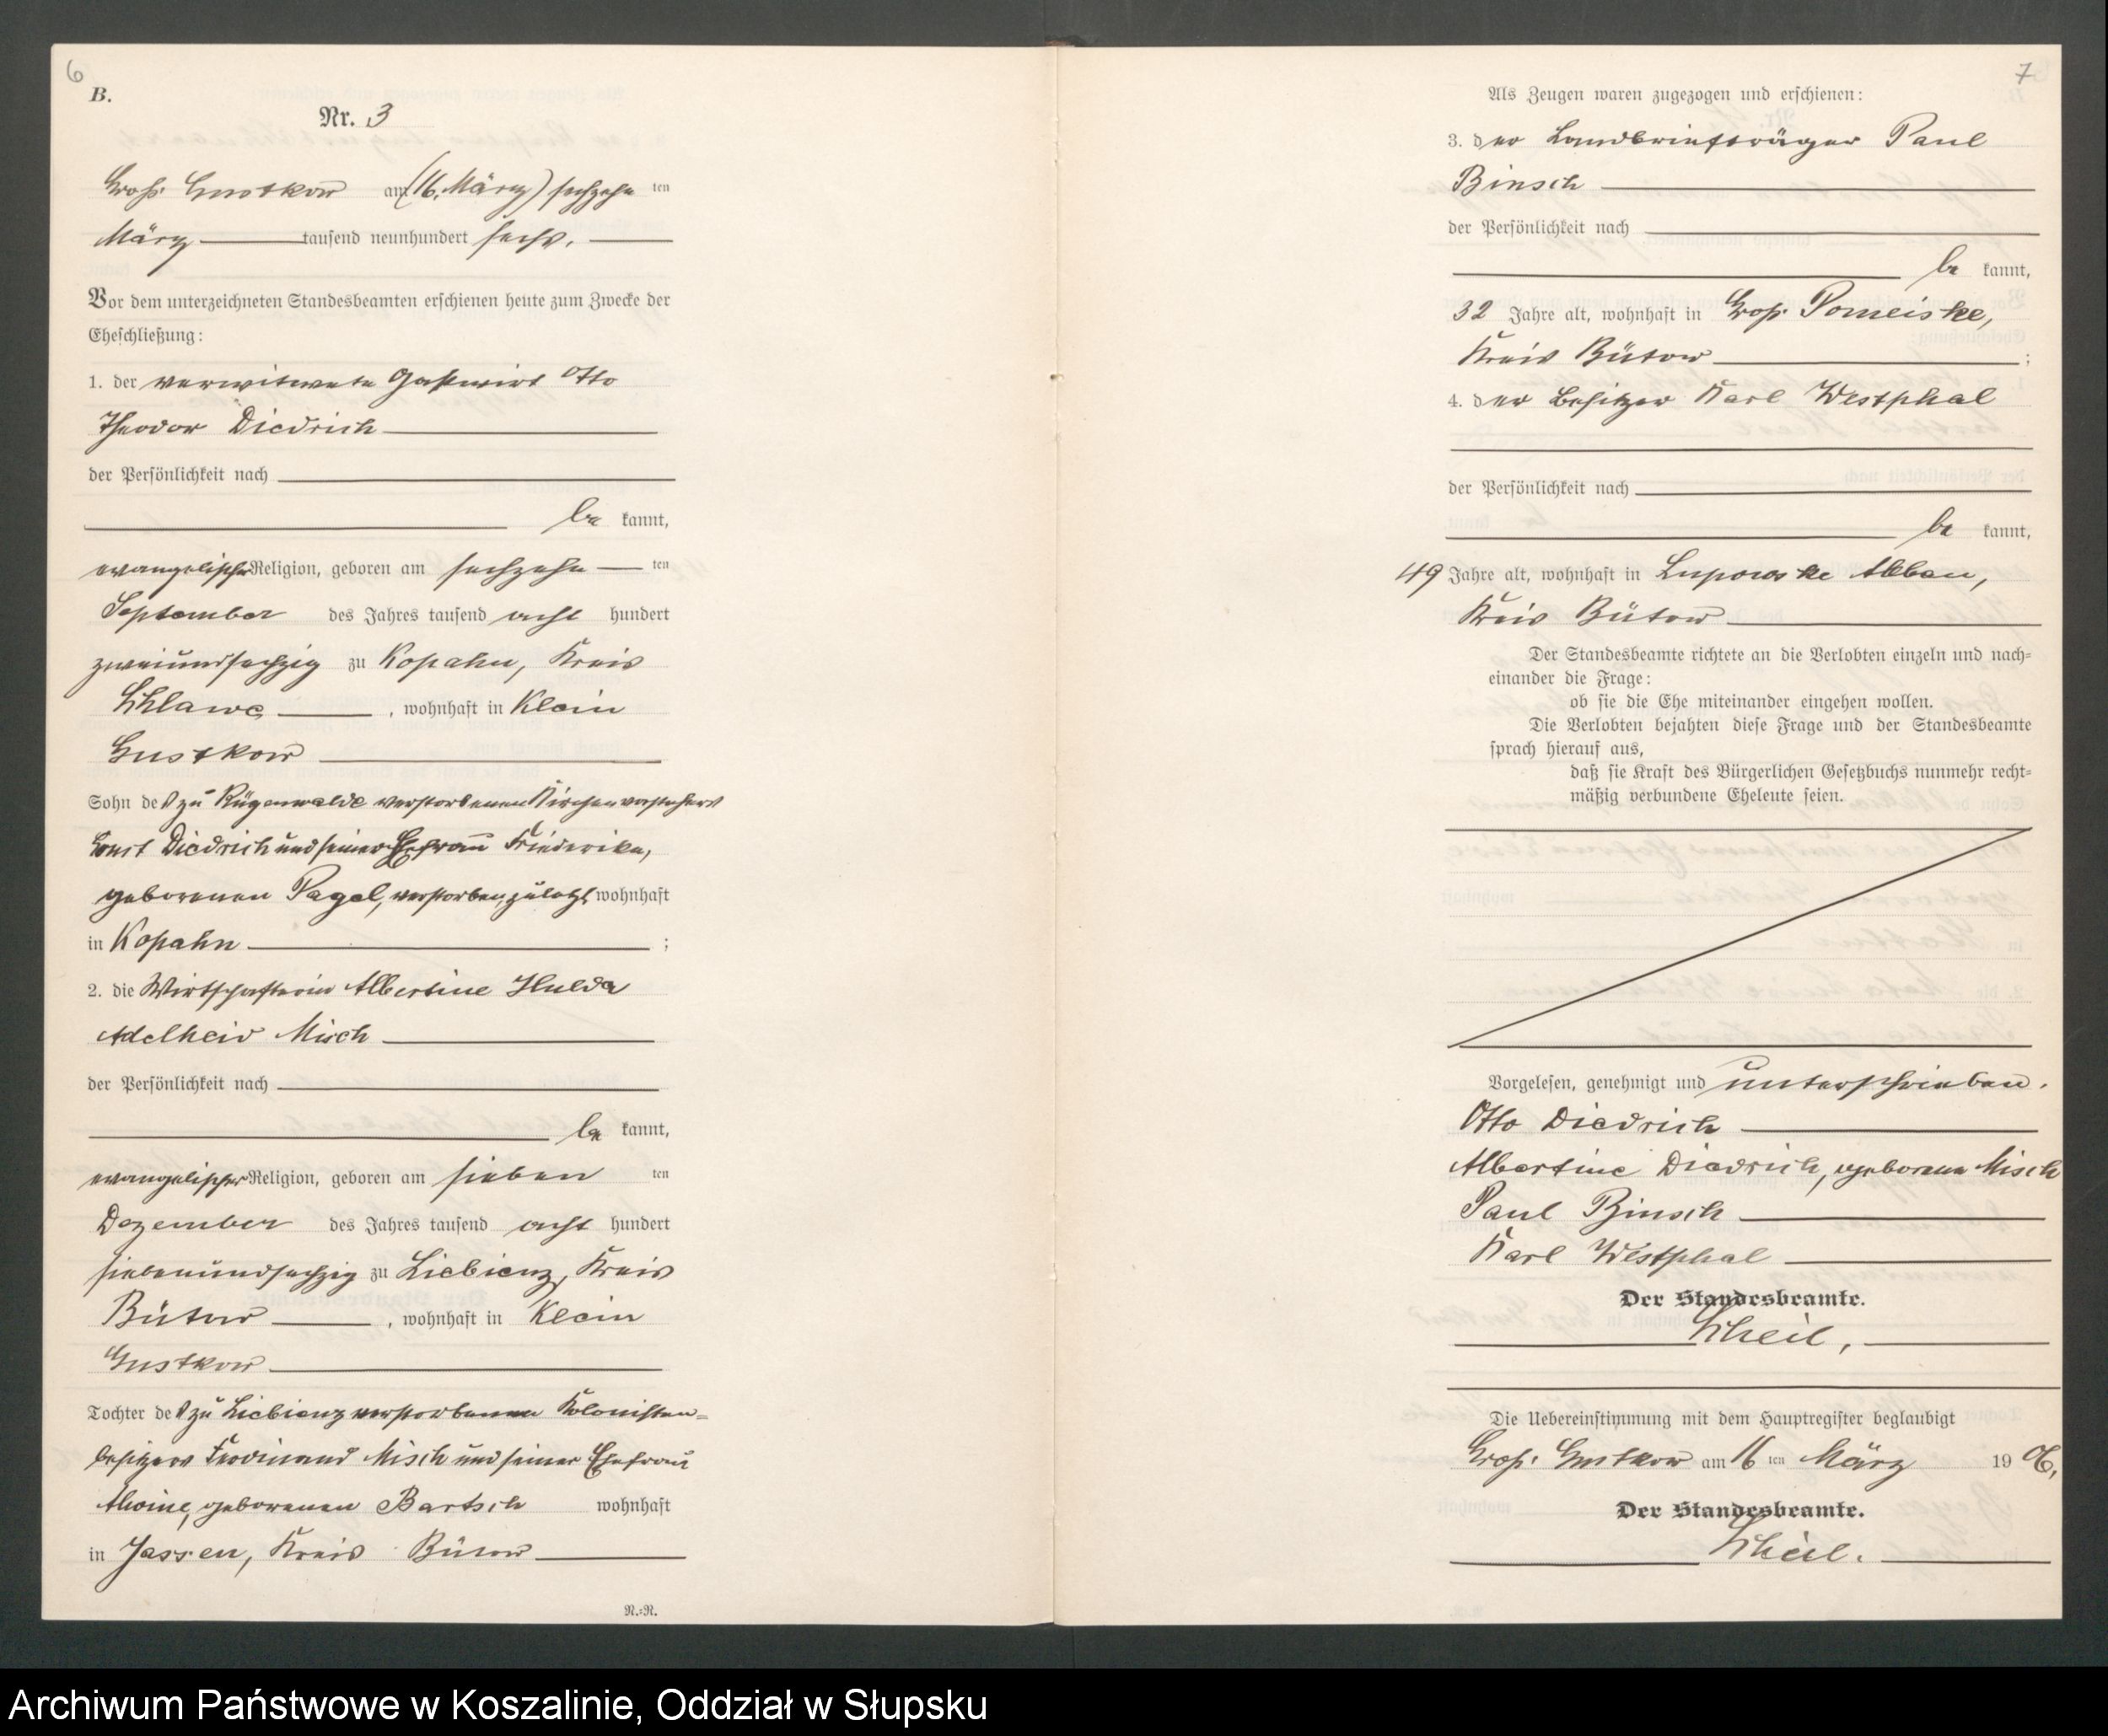 6
B.
Nr. 3
Groß Gustkow am (16. März) sechzehnten
März tausend neunhundert sechs.
Vor dem unterzeichneten Standesbeamten erschienen heute zum Zwecke der
Eheschließung:
1. der verwitwete Gastwirt Otto
Theodor Diedrich
der Persönlichkeit nach
be kannt,
evangelischer Religion, geboren am sechzehn ten
September des Jahres tausend acht hundert
zweiundsechzig zu Kopahn, Kreis
Schlawe, wohnhaft in Klein
Gustkow
Sohn des zu Rügenwalde verstorbenen Kirchenvorstehers
Ernst Diedrich und seiner Ehefrau Friederike,
geborenen Pagel, verstorben, zuletzt wohnhaft
in Kopahn ;
2. die Wirtschafterin Albertine Hulda
Adelheid Misch
der Persönlichkeit nach
be kannt,
evangelischer Religion, geboren am sieben ten
Dezember des Jahres tausend acht hundert
siebenundsechzig zu Liebienz, Kreis
Bütow, wohnhaft in Klein
Gustkow
Tochter des zu Liebienz verstorbenen Kolonisten=
besitzers Ferdinand Misch und seiner Ehefrau
Alwine, geborenen Bartsch wohnhaft
in Jassen, Kreis Bütow
N.=N.
7
Als Zeugen waren zugezogen und erschienen:
3. der Landbriefträger Paul
Binsch
der Persönlichkeit nach
be kannt,
32 Jahre alt, wohnhaft in Groß Pomeiske,
Kreis Bütow ;
4. der Besitzer Karl Westphal
der Persönlichkeit nach
be kannt,
49 Jahre alt, wohnhaft in Lupowske Abbau,
Kreis Bütow
Der Standesbeamte richtete an die Verlobten einzeln und nach=
einander die Frage:
ob sie die Ehe miteinander eingehen wollen.
Die Verlobten bejahten diese Frage und der Standesbeamte
sprach hierauf aus,
daß sie Kraft des Bürgerlichen Gesetzbuchs nunmehr recht=
mäßig verbundene Eheleute seien.
Vorgelesen, genehmigt und unterschrieben.
Otto Diedrich
Albertine Diedrich, geborene Misch
Paul Binsch
Karl Westphal
Der Standesbeamte.
Scheil,
Die Uebereinstimmung mit dem Hauptregister beglaubigt
Groß Gustkow am 16 ten März 19 06,
Der Standesbeamte.
Scheil.
Archiwum Państwowe w Koszalinie, Oddział w Słupsku